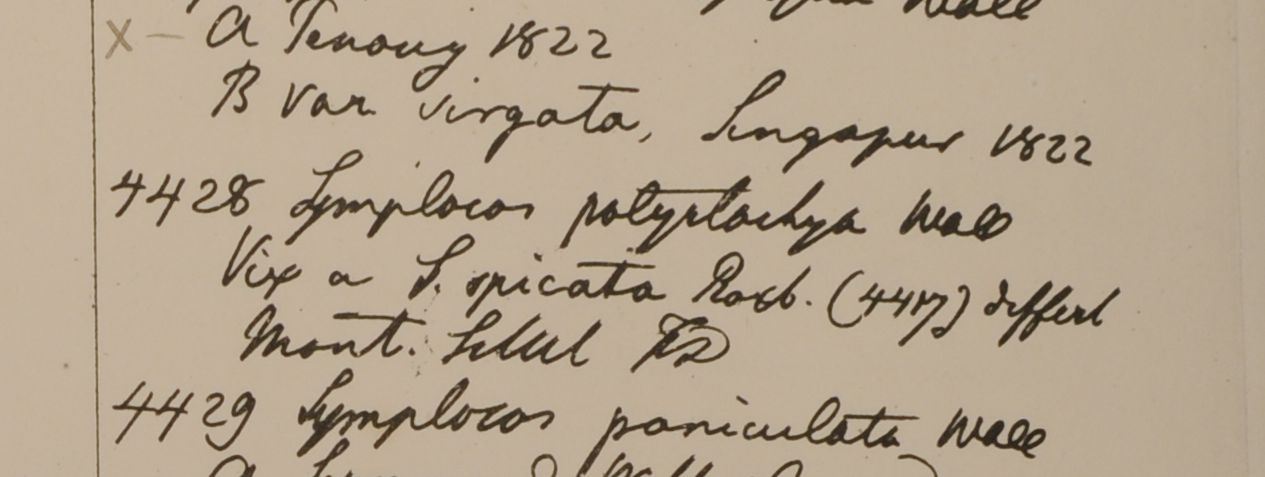 Wall
X — A Penang 1822
B var virgata, Singapur 1822
4428 Symplocos polystachya Wall
Vix a S. spicata Roxb. (4417) differt
Mont. Sillet FD
4429 Symplocos paniculata Wall